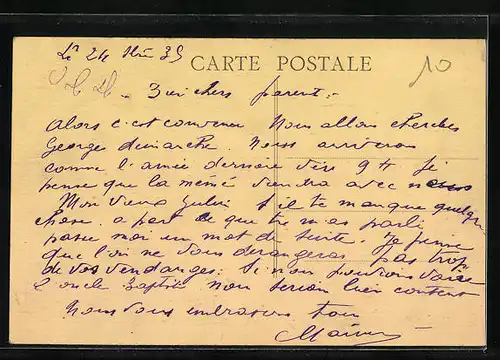 Le 24 35
CARTE POSTALE
10
chers parent :
Alors c'est convenu Nous allons chercher
Georges dimanche. Nous arriverons
comme l'année dernière vers 9 H Je
pense que la mémé viendra avec nous
Mon vieux s'il te manque quelque
chose a part ce que tu m as parlé
passe moi un mot de suite. Je pense
que l'on ne vous dérangeras pas trop
de vos vendanges. Si nous pouvions voire
l oncle Baptiste nous serions bien content
Nous vous embrassons tous